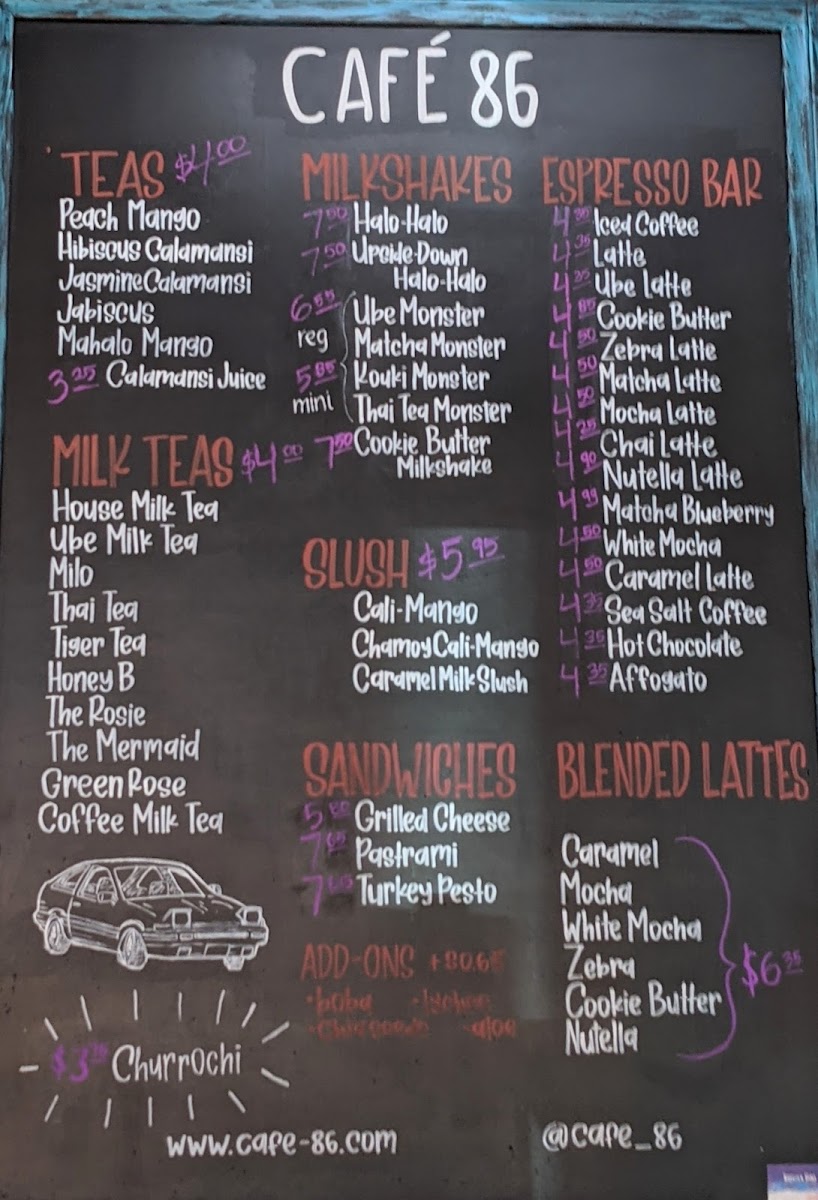 CAFÉ 86
TEAS $4.00
Peach Mango
Hibiscus Calamansi
Jasmine Calamansi
Jabiscus
Mahalo Mango
3.25 Calamansi Juice
MILK TEAS $4.00
House Milk Tea
Ube Milk Tea
Milo
Thai Tea
Tiger Tea
Honey B
The Rosie
The Mermaid
Green Rose
Coffee Milk Tea
Churrochi
MILKSHAKES
7.50 Halo-Halo
7.50 Upside-Down
Halo-Halo
Ube Monster
reg Matcha Monster
5.85 Kouki Monster
mini Thai Tea Monster
7.50 Cookie Butter
Milkshake
SLUSH $5.95
Cali-Mango
Chamoy Cali-Mango
Caramel Milk Slush
SANDWICHES
Grilled Cheese
Pastrami
Turkey Pesto
ADD-ONS
•boba •lychee
•chia seeds aloe
ESPRESSO BAR
Iced Coffee
4.35 Latte
4.35 Ube Latte
4.85 Cookie Butter
4.50 Zebra Latte
4.50 Matcha Latte
4.50 Mocha Latte
4.25 Chai Latte
4.90 Nutella Latte
4.99 Matcha Blueberry
4.50 White Mocha
4.50 Caramel Latte
4.35 Sea Salt Coffee
4.35 Hot Chocolate
4.35 Affogato
BLENDED LATTES
Caramel
Mocha
White Mocha
Zebra
$6.35
Cookie Butter
Nutella
www.cafe-86.com
@cafe_86